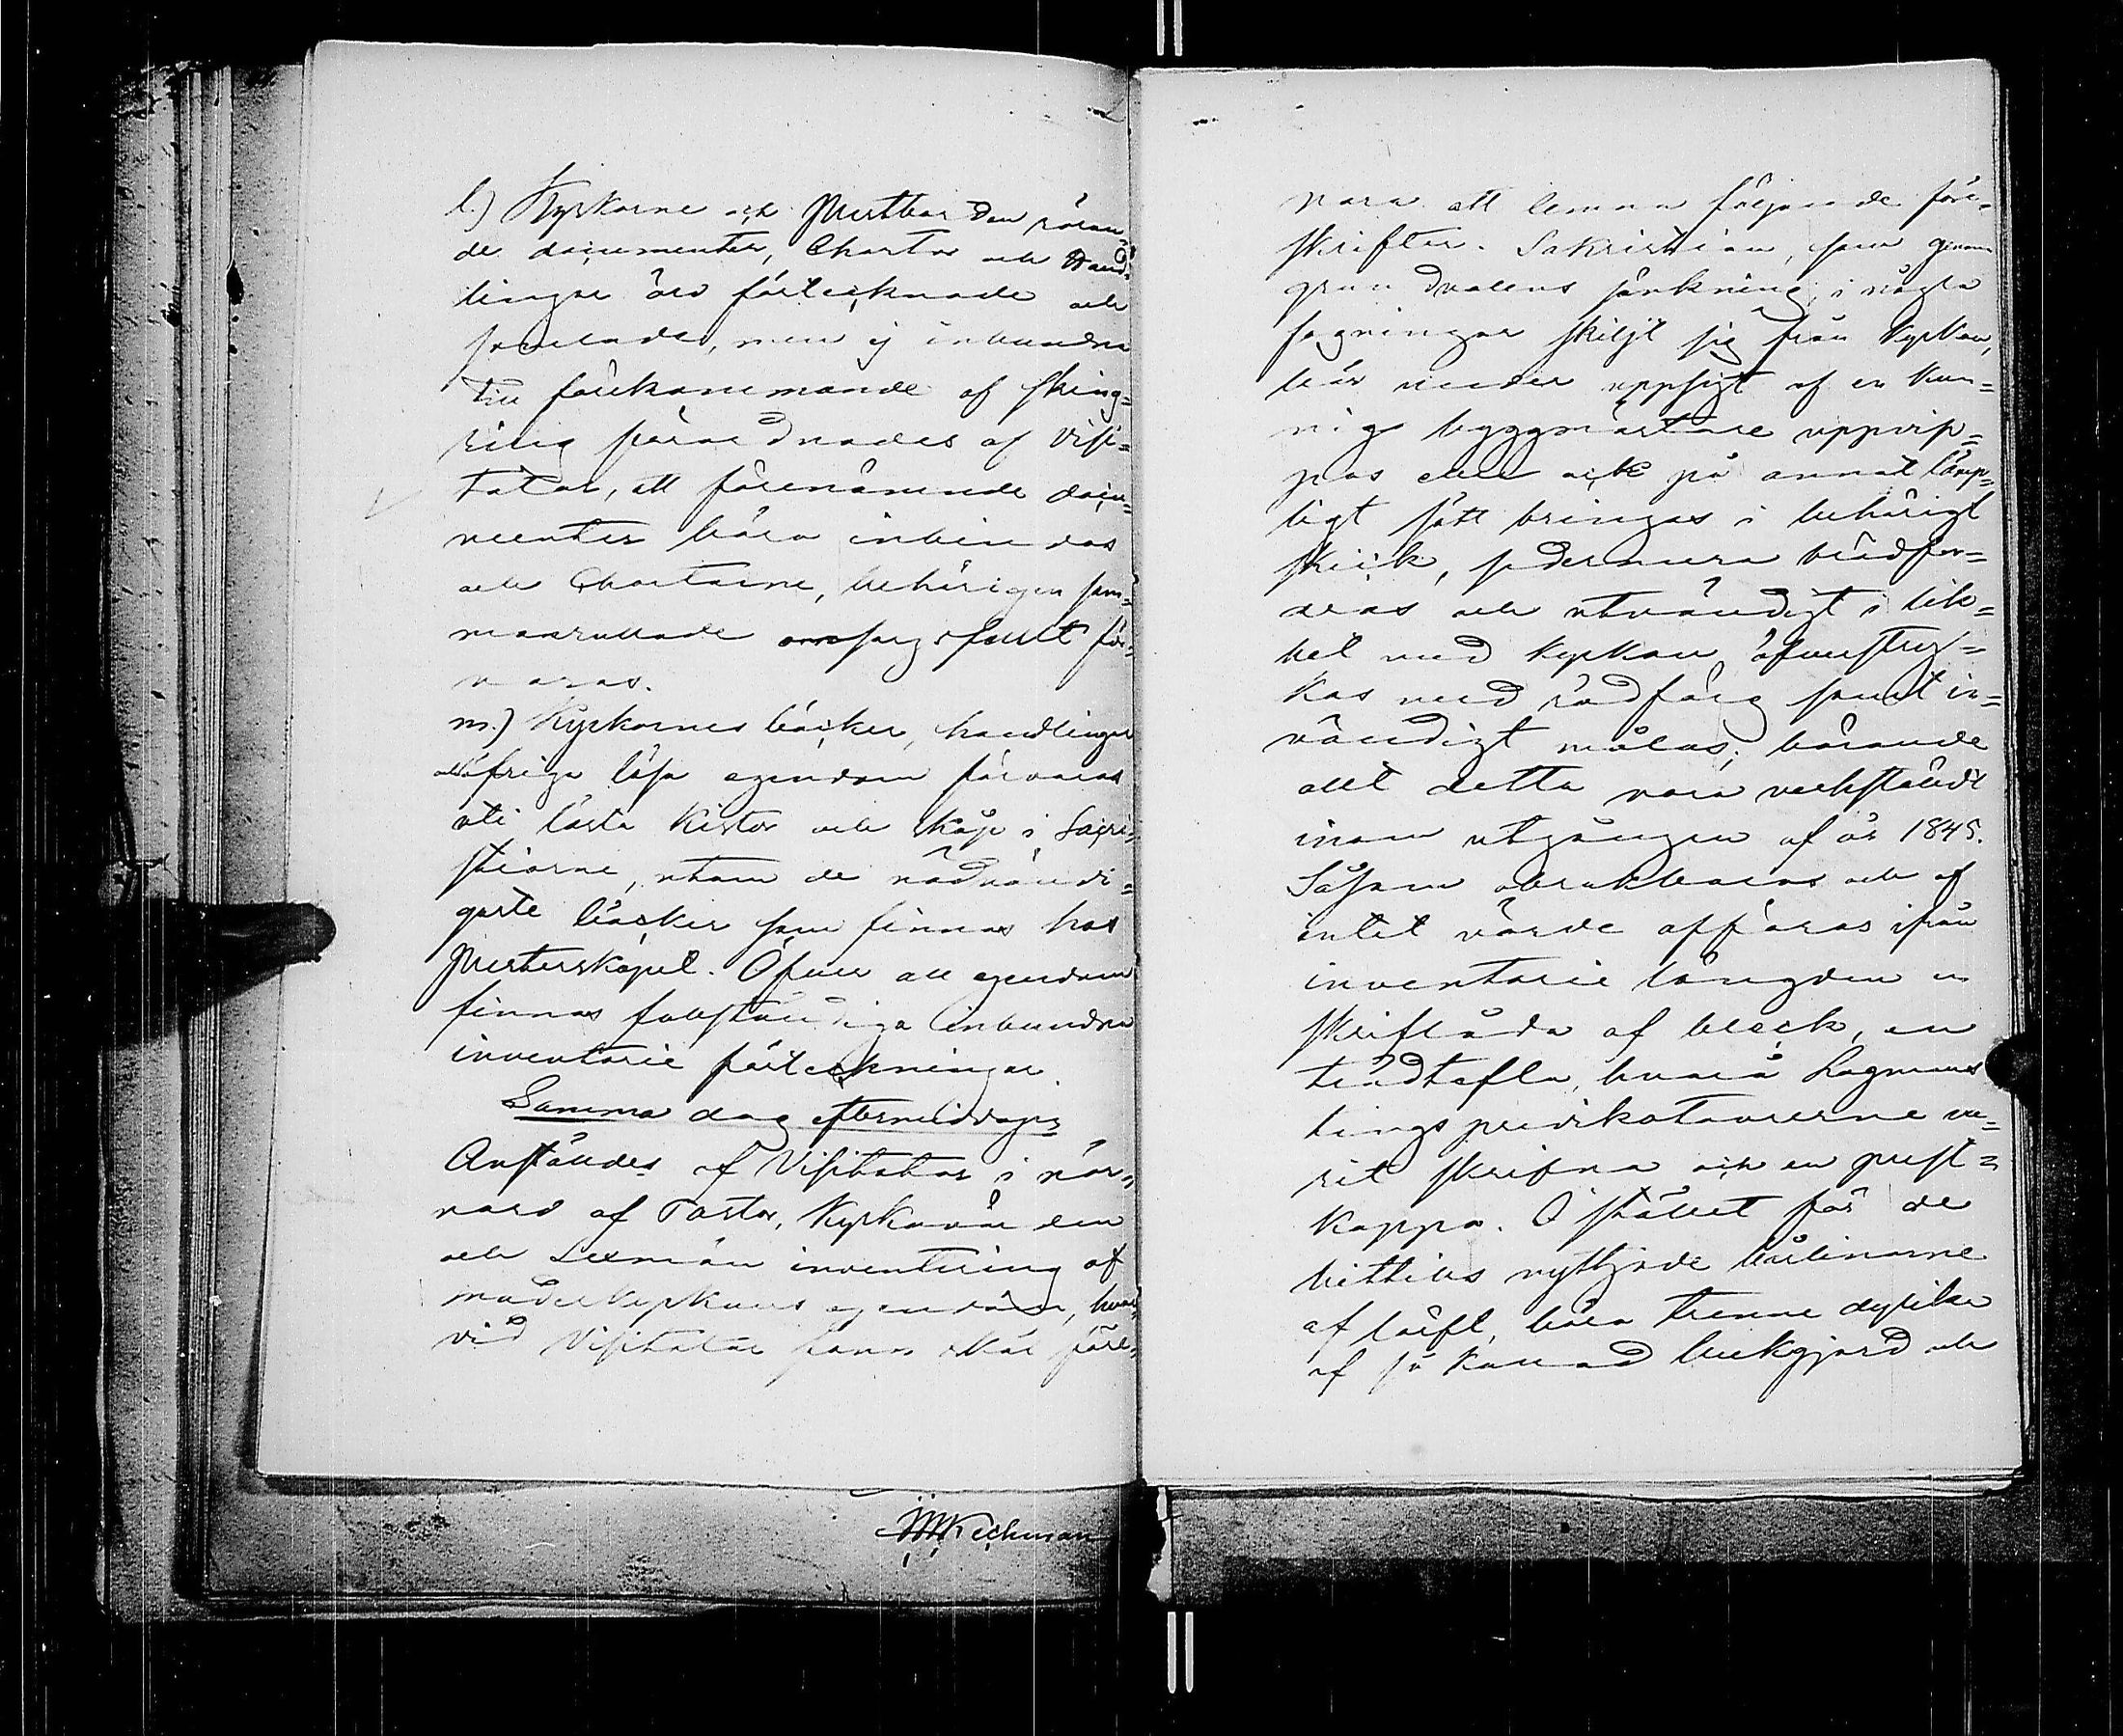 l.) Kyrkorne och Prestborden röran=
de documenter, Chartor och Hand=
lingar äro förtecknade och
samlade, men ej inbundna
till förekommande af sking=
ring förordnades af Visi=
tator, att förenämnde docu=
menter böra inbindas
och Chartorne, behörigen sam=
manrullade sorgfullt för=
varas.
m.) Kyrkornes böcker, handlingar
och öfriga lösa egendom förvaras
uti låsta kistor och skåp i Sacri=
stiorne, utom de nödvändi=
gaste böcker som finnas hos
Presterskapet. Öfver all egendom
finnas fullständiga inbundna
inventarie förteckningar.
Samma dag eftermiddagen
Anställdes af Visitator i när=
varo af Pastor, Kyrkovärden
och Sexmän inventering af
moderkyrkans egendom, hvar=
vid Visitator fann skäl före=
JMKechman
vara att lemna följande före=
skrifter. Sakristian, som genom
grundvalens sänkning, i några
fogningar skiljt sig från Kyrkan,
bör under uppsigt af en kun=
nig byggmästare uppvip=
pas eller ock på annat lämp=
ligt sätt bringas i behörigt
skick, sedermera brädfor=
dras och utvändigt i lik=
het med kyrkan öfverstry=
kas med rödfärg samt in=
vändigt målas; börande
allt detta vara verkstäldt
inom utgången af år 1845.
Såsom obrukbaras och af
intet värde afföras ifrån
inventarie längden en
skriflåda af bleck, en
trädtafla, hvarå Lagmans
tings predikotourerne va=
rit skrifna och en prest=
kappa. I stället för de
hittills nyttjade bulinorne
af löift, böra trenne dylika
af så kallad bukgjord och